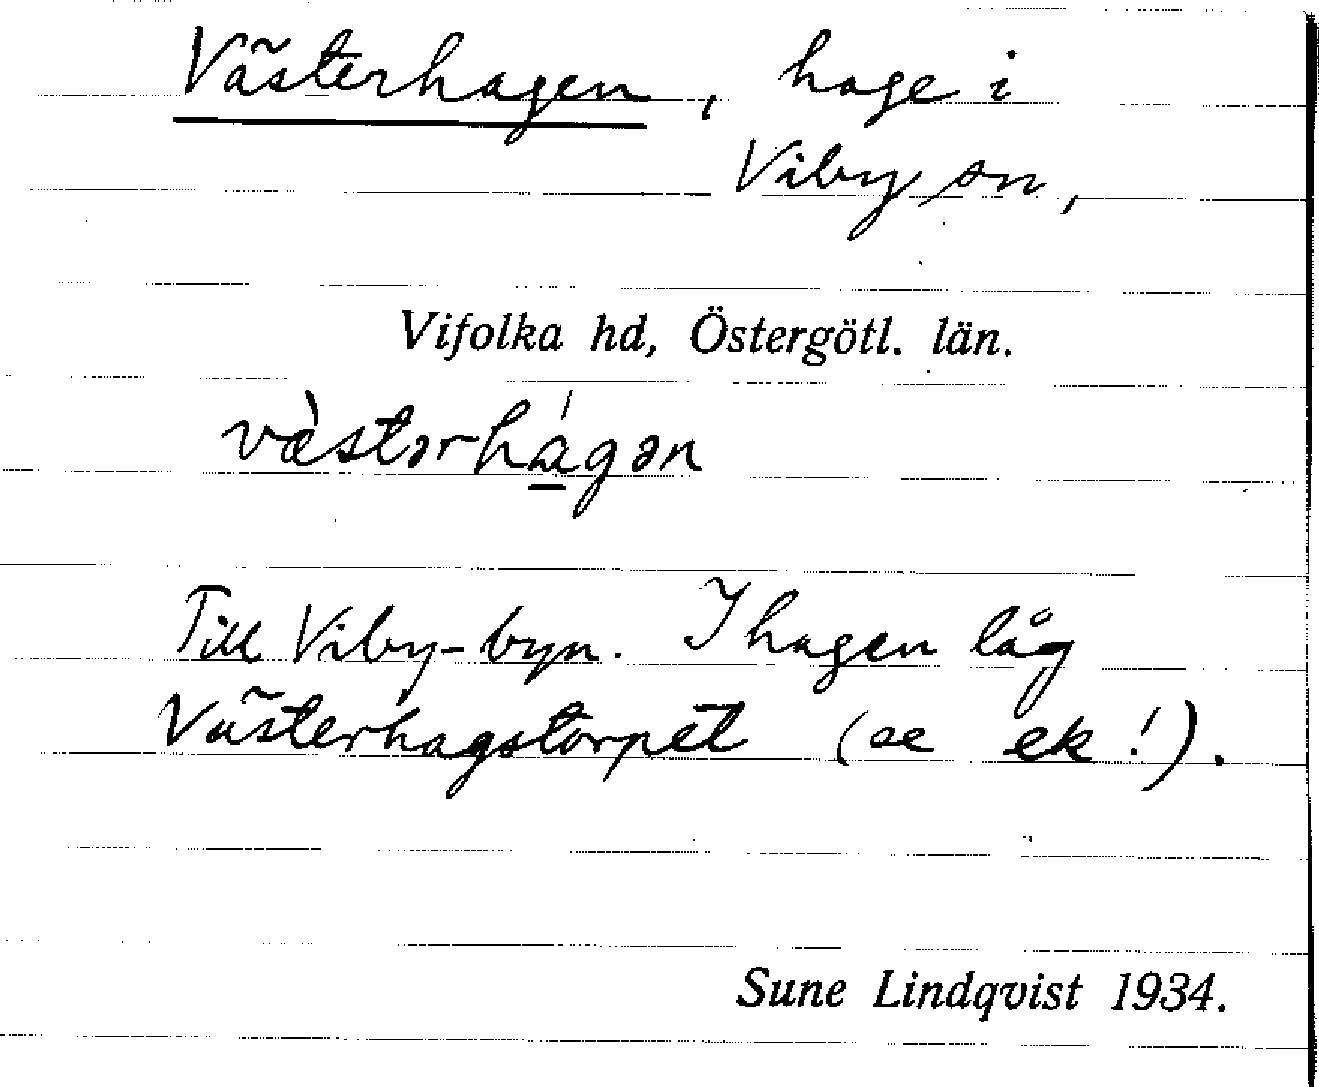 Västerhagen, hage i
Viby sn,
Vifolka hd, Östergötl. län.
væ̀stərhágən
Till Viby-byn. I hagen låg
Västerhagstorpet (se ek!).
Sune Lindqvist 1934.